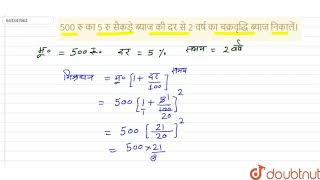 643347661
500 रु का 5 रु सैकड़े ब्याज की दर से 2 वर्ष का चक्रवृद्धि ब्याज निकालें।
मू० = 500 रु० दर = 5 % समय = 2 वर्ष
मिश्रधन = मू० [1 + दर/100]^समय
= 500 [1/1 + 5 1/100 20]^2
= 500 [21/20]^2
= 500 × 21
doubtnut